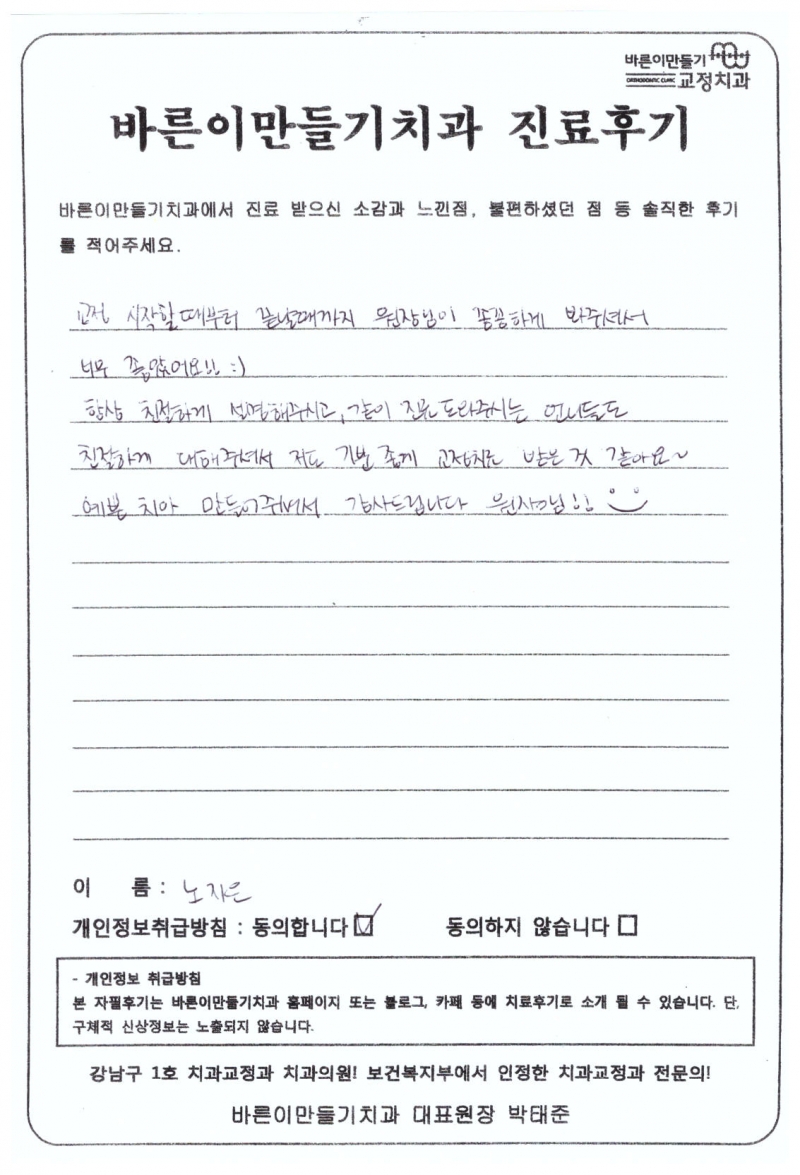 바른이만들기
ORTHODONTIC CLINIC 교정치과
바른이만들기치과 진료후기
바른이만들기치과에서 진료 받으신 소감과 느낀점, 불편하셨던 점 등 솔직한 후기
를 적어주세요.
교정 시작할때부터 끝날때까지 원장님이 꼼꼼하게 봐주셔서
너무 좋았어요!! :)
항상 친절하게 설명해주시고, 같이 진료 도와주시는 언니들도
친절하게 대해주셔서 저도 기분 좋게 교정치료 받은 것 같아요~
예쁜 치아 만들어주셔서 감사드립니다 원장님!!
이 름 : 노자은
개인정보취급방침 : 동의합니다 동의하지 않습니다
- 개인정보 취급방침
본 자필후기는 바른이만들기치과 홈페이지 또는 블로그, 카페 등에 치료후기로 소개 될 수 있습니다. 단,
구체적 신상정보는 노출되지 않습니다.
강남구 1호 치과교정과 치과의원! 보건복지부에서 인정한 치과교정과 전문의!
바른이만들기치과 대표원장 박태준